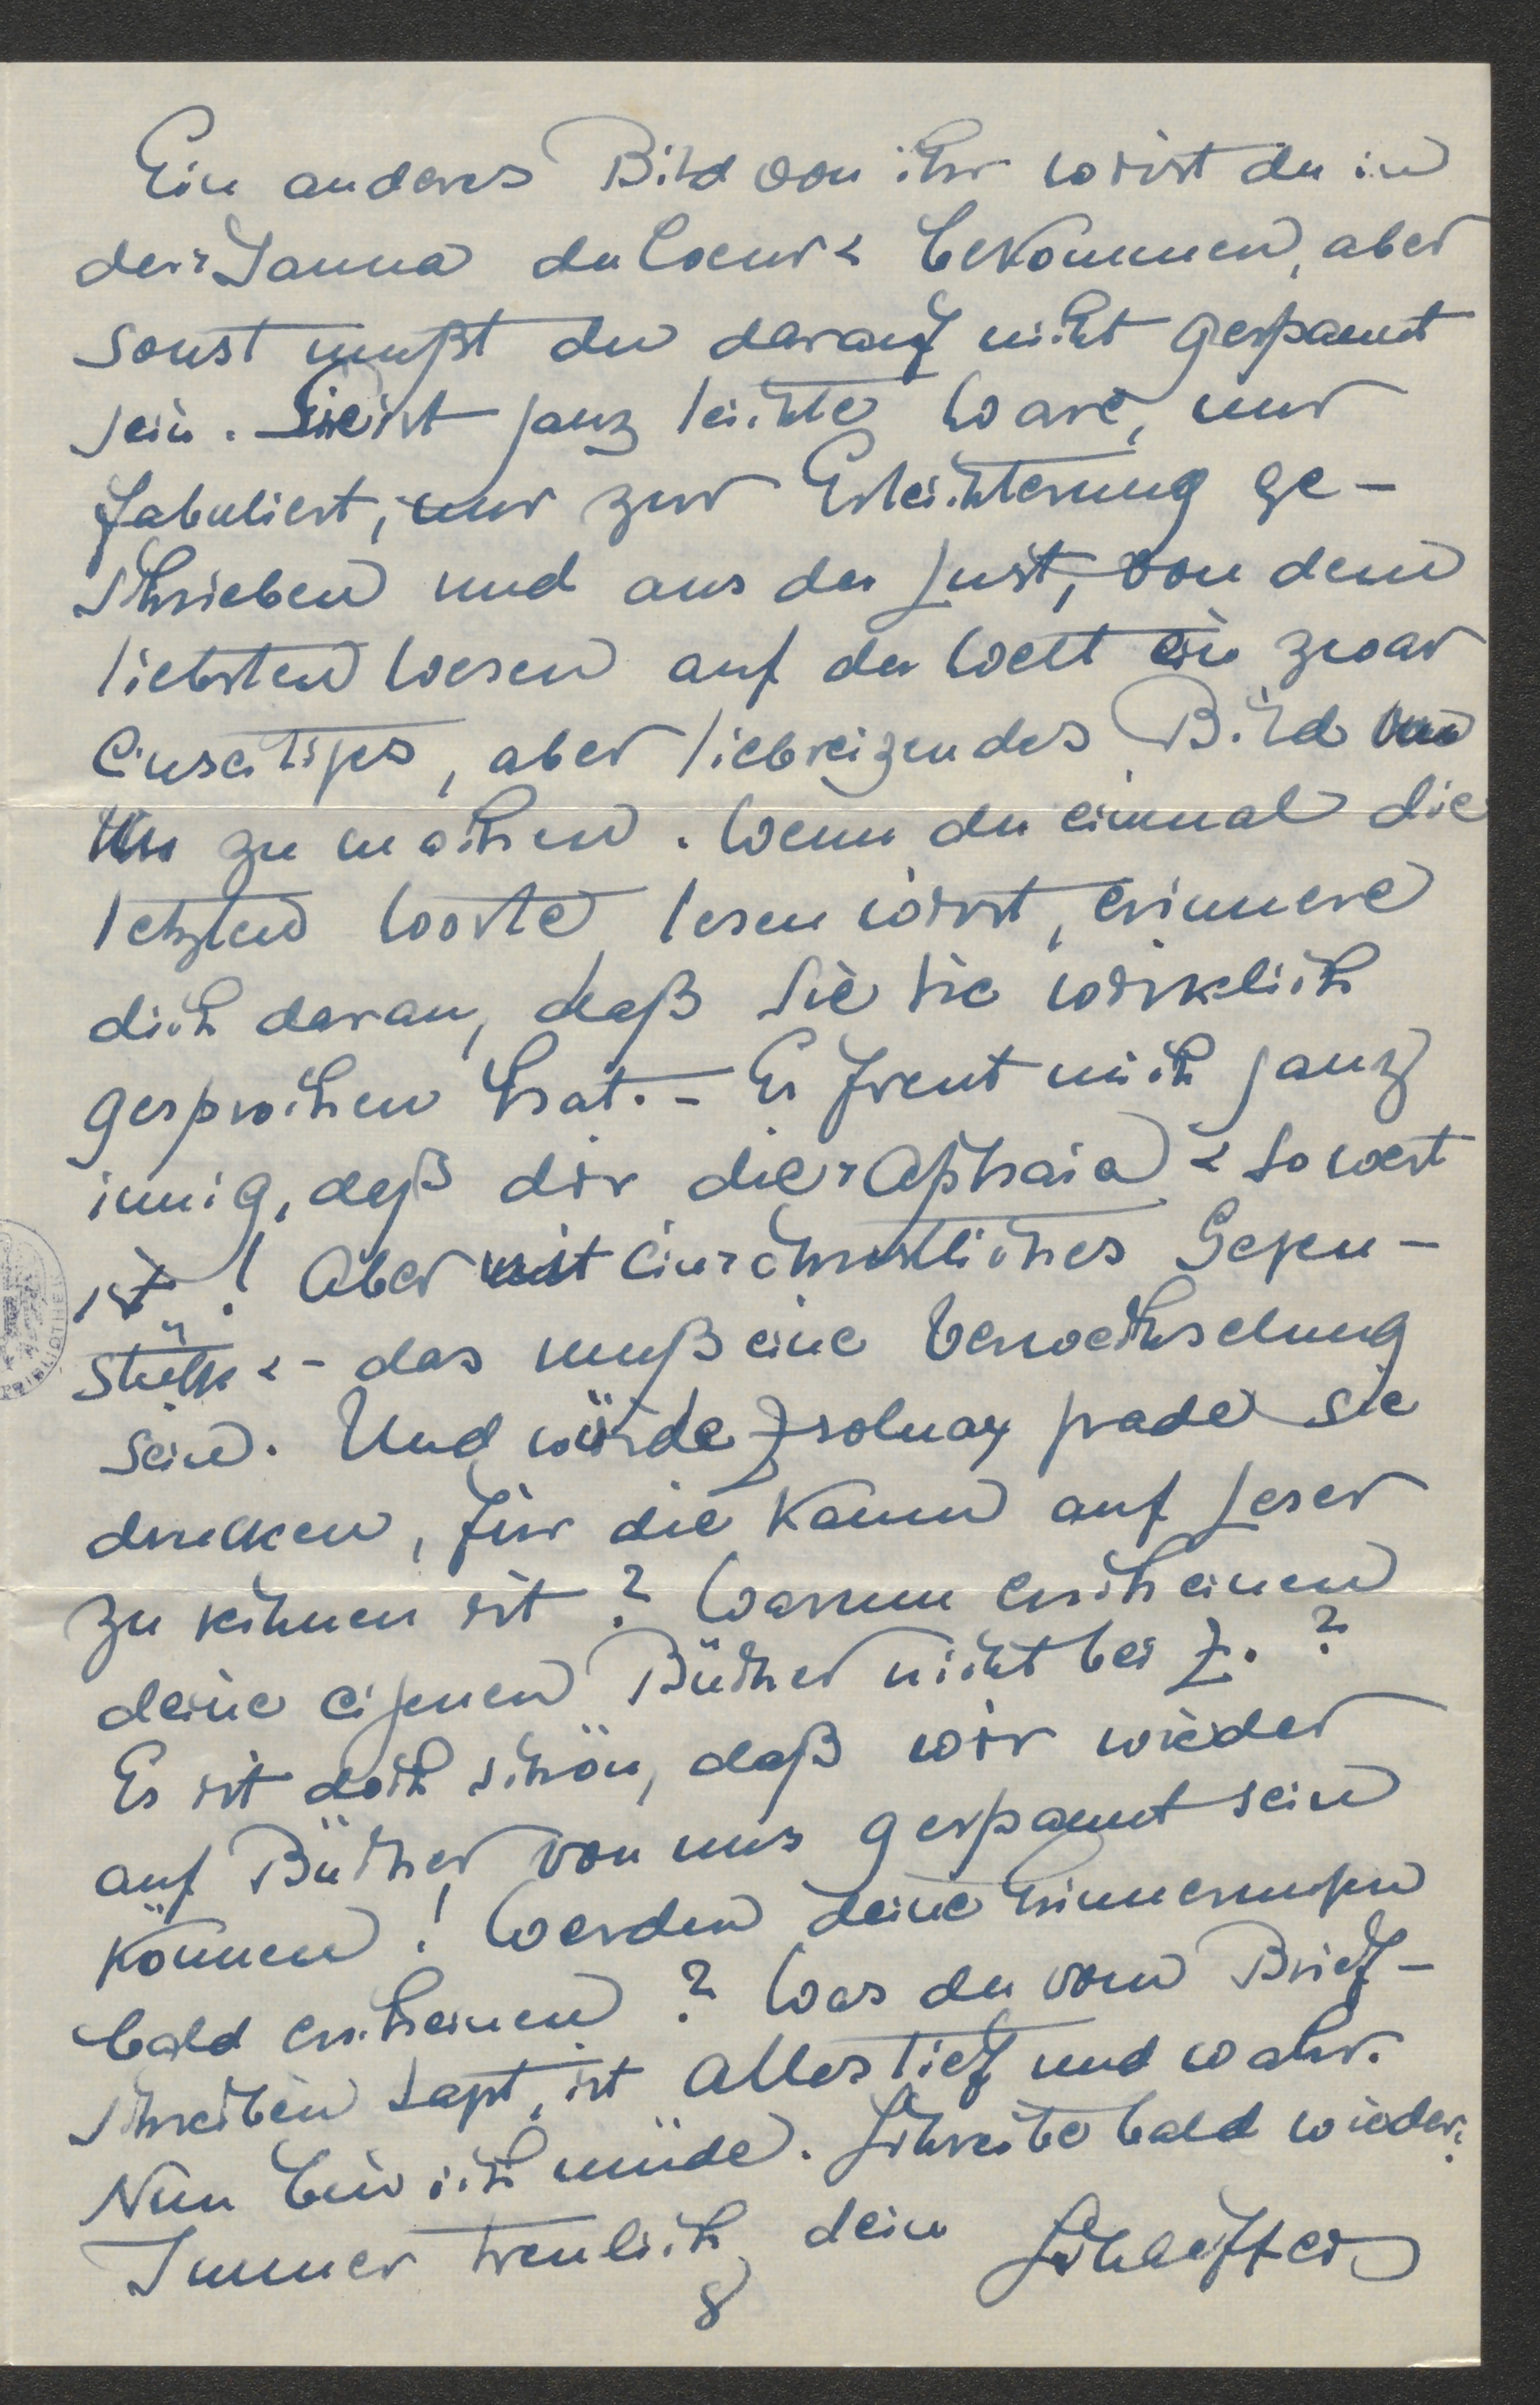 Ein anderes Bild von ihr wirst du in
der »Janna du Coeur« bekommen, aber
sonst mußt du darauf nicht gespannt
sein. Sie ist ganz leichte Ware, nur
fabuliert, nur zur Erleichterung ge-
schrieben und aus der Lust, von dem
liebsten Wesen auf der Welt ein zwar
einseitiges, aber liebreizendes Bild
zu machen. Wenn du einmal die
letzten Worte lesen wirst, erinnere
dich daran, daß sie sie wirklich
gesprochen hat. – Es freut mich ganz
innig, daß dir die »Aphaia« so wert
ist! Aber ein »christliches Gegen-
stück« – das muß eine Verwechslung
sein. Und würde Zsolnay grade sie
drucken, für die kaum auf Leser
zu rechnen ist? Warum erscheinen
deine eigenen Bücher nicht bei Z.?
Es ist doch schön, daß wir wieder
auf Bücher von uns gespannt sein
können! Werden deine Erinnerungen
bald erscheinen? Was du vom Brief-
schreiben sagst, ist alles tief und wahr.
Nun bin ich müde. Schreibe bald wieder.
Immer treulich dein Schaeffer
8